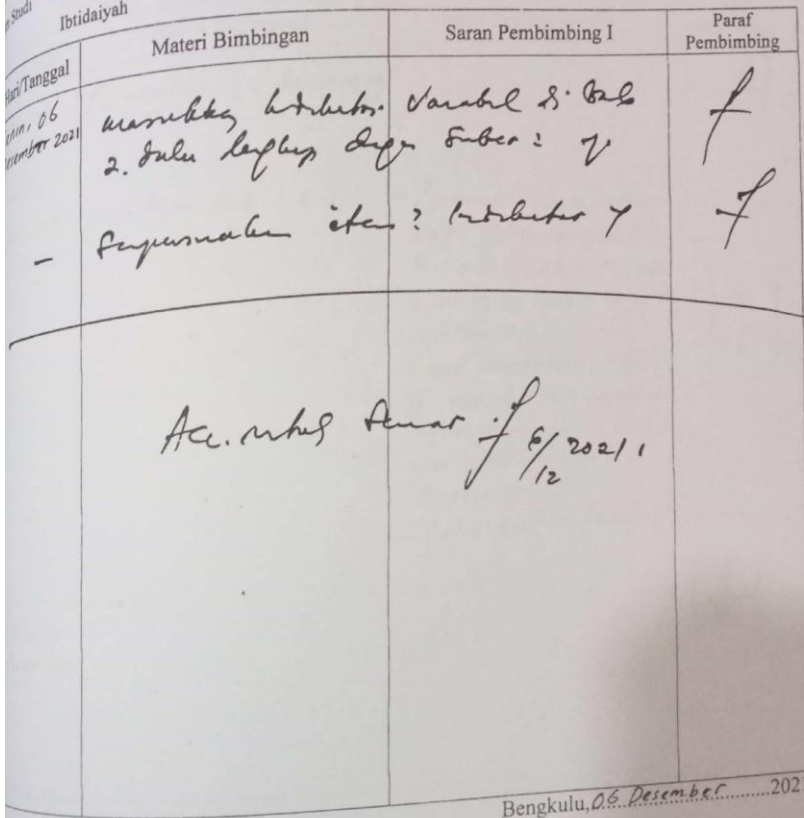 Studi
Ibtidaiyah
Hari/Tanggal Materi Bimbingan Saran Pembimbing I Paraf Pembimbing
Senin, 06 Desember 2021
masukkan indikator variabel di Bab
2. dulu lengkap dengan
- item? indikator Y
Acc. untuk 6/12 2021
Bengkulu, 06 Desember 202